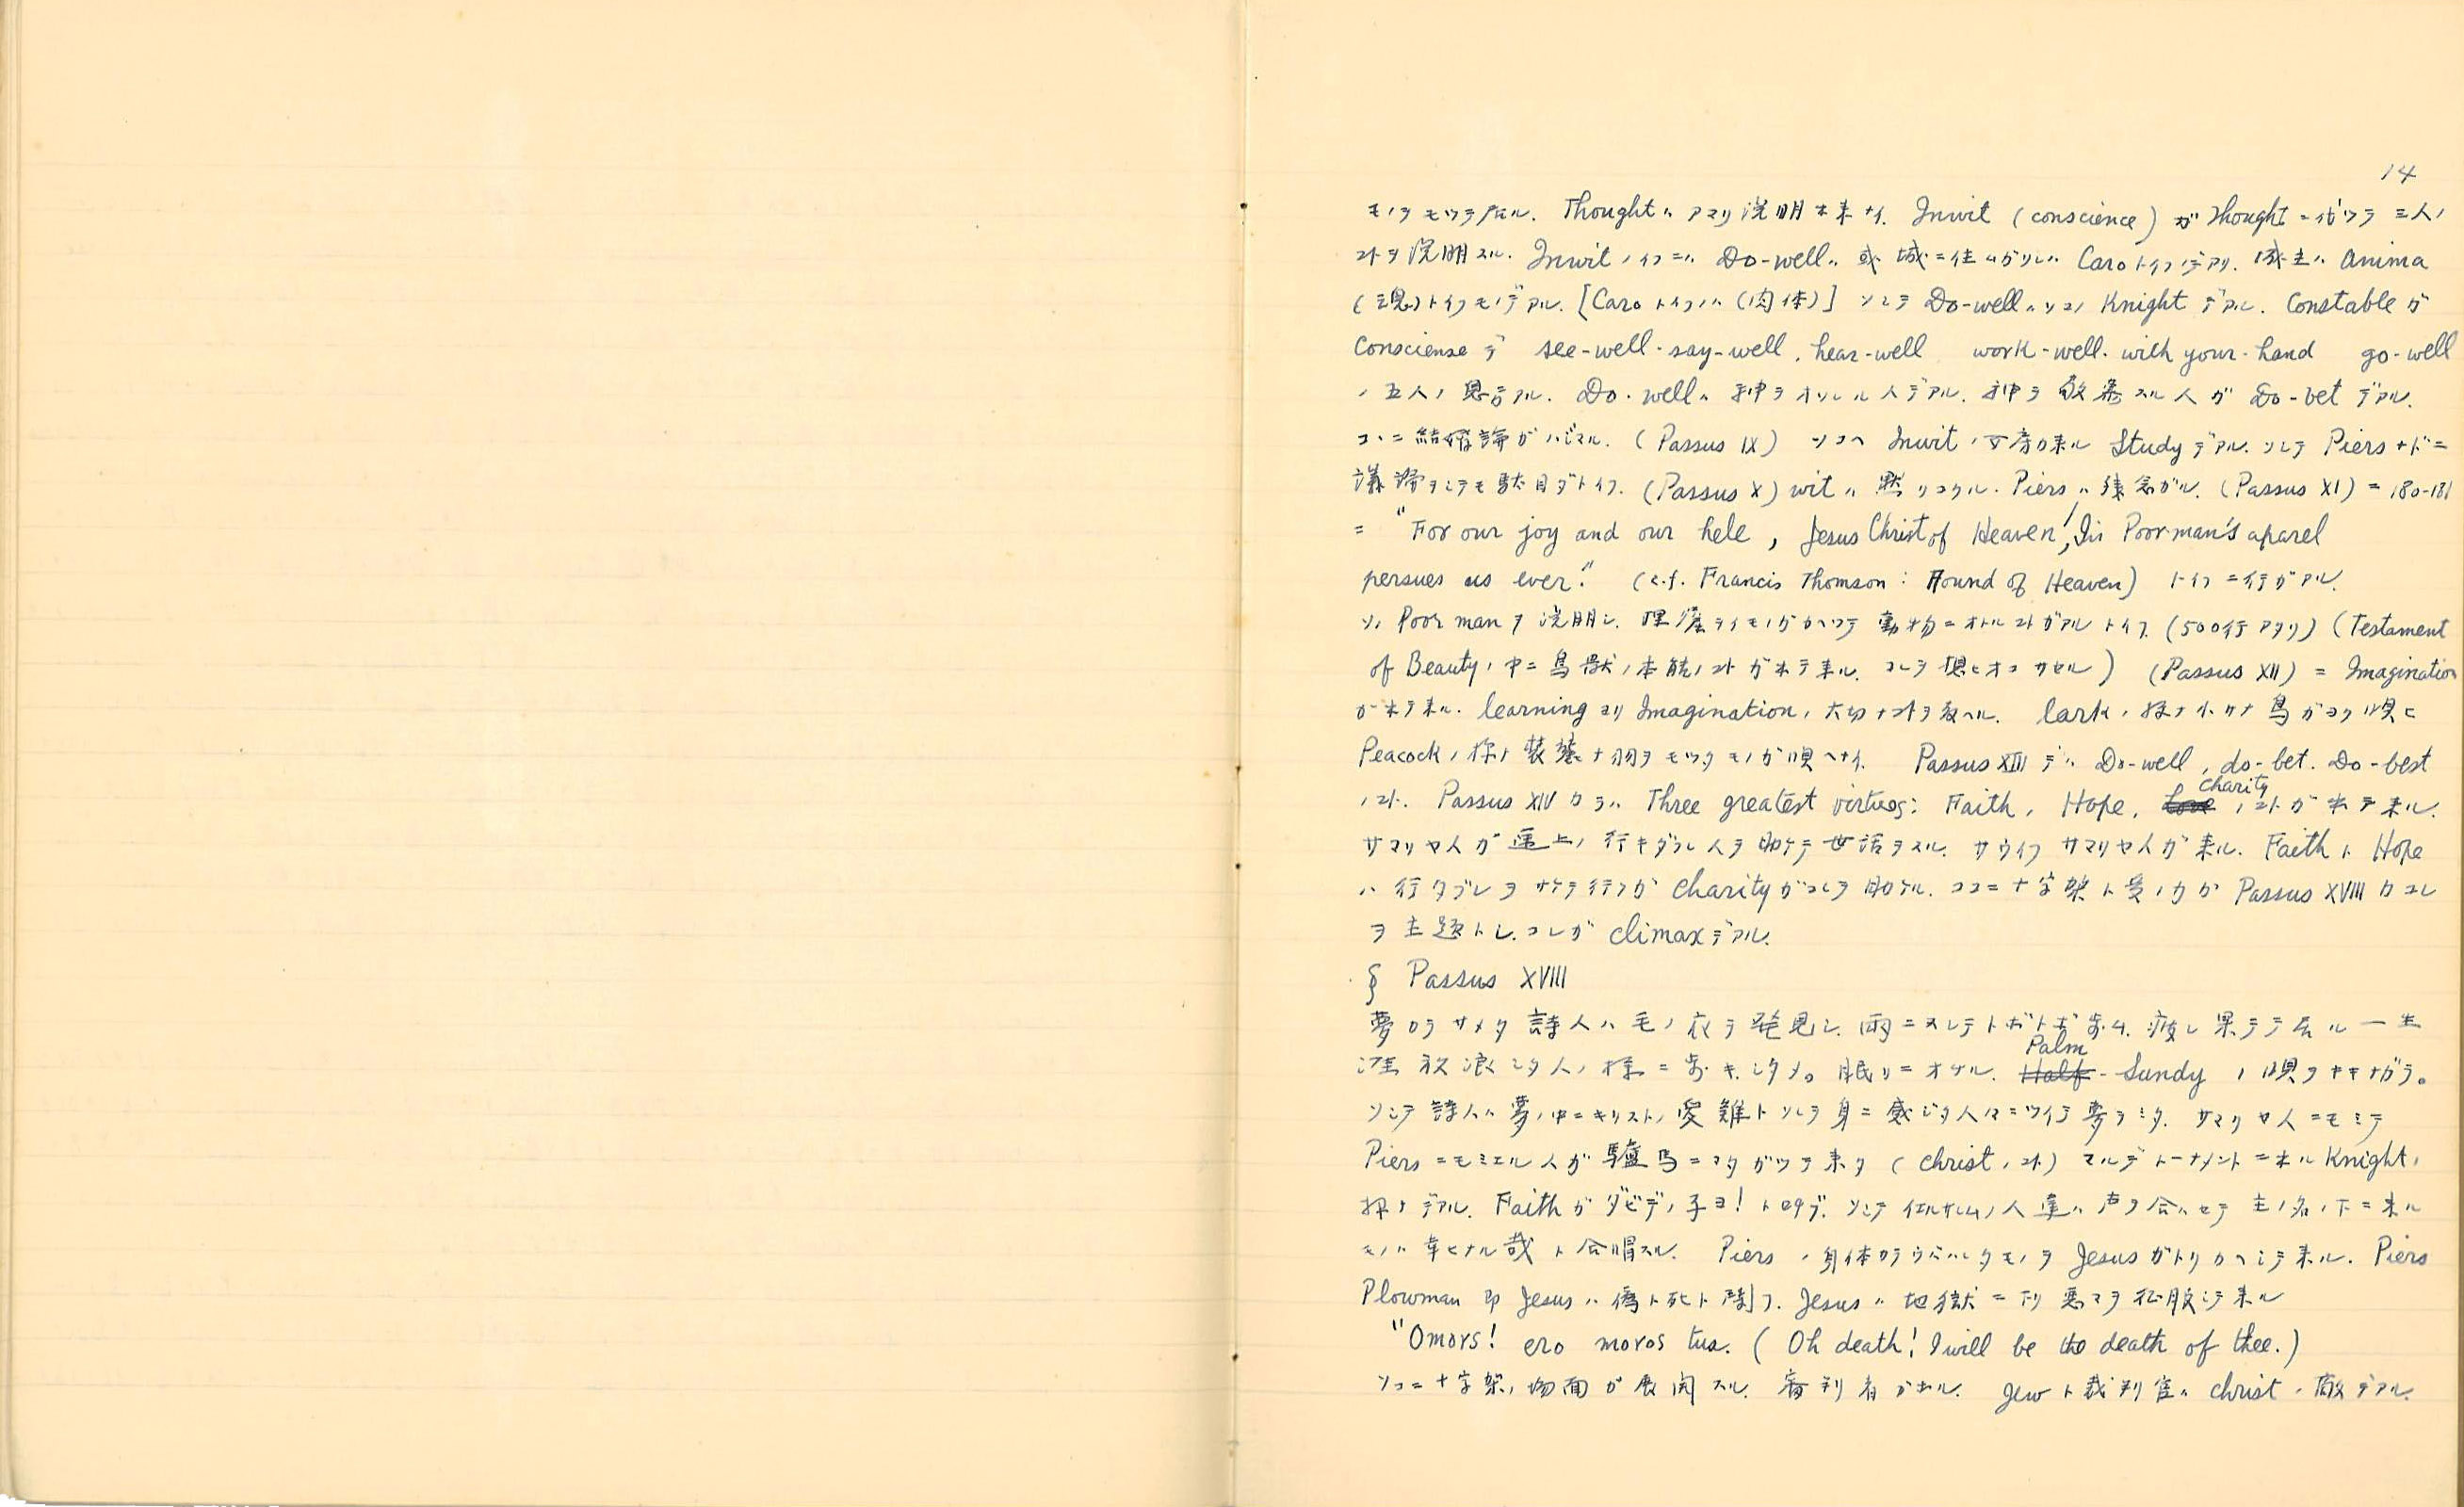 14
モノヲモツテ居ル. Thought ハ アマリ説明出来ナイ. Inwit (conscience) ガ Thought ニ代ワツテ 三人ノ
コトヲ説明スル. Inwit ノイフニハ Do-well ハ 或城ニ住ムガソレハ Caro トイフノデアリ. 城主ハ anima
(魂)トイフモノデアル. [Caro トイフノハ (肉体)] ソシテ Do-well ハソコノ Knight デアル. Constable ガ
Consciense デ see-well. say-well, hear-well work-well. with your-hand go-well
ノ五人ノ息子アル. Do-well ハ 神ヲオソレル人デアル. 神ヲ敬愛スル人ガ Do-bet デアル.
コヽニ結婚論ガハジマル. (Passus IX) ソコヘ Inwit ノ女房ガ来ル Study デアル. ソシテ Piers ナドニ
議論ヲシテモ駄目ダトイフ. (Passus X) wit ハ 黙リコクル. Piers ハ 残念ガル. (Passus XI) = 180-181
= "For our joy and our hele, Jesus Christ of Heaven!, In Poor man's aparel
persues us ever." (c.f. Francis Thomson : Hound of Heaven) トイフ二行ガアル.
ソノ Poor man ヲ説明シ. 理窟ライモノガカヘツテ動物ニオトルコトガアルトイフ. (500行アタリ) (Testament
of Beauty ノ中ニ鳥獣ノ本能ノコトガ出テ来ル. コレヲ想ヒオコサセル) (Passus XII) = Imagination
ガ出テ来ル. learning ヨリ Imagination ノ大切ナコトヲ教ヘル. lark ノ様ナ小サナ鳥ガヨク唄ヒ
Peacock ノ様ナ装ナ羽ヲモツタモノガ唄ヘナイ. Passus XIII デハ Do-well, do-bet. Do-best
ノコト. Passus XIV カラハ Three greatest virtues: Faith, Hope, charity ノコトガ出テ来ル.
サマリヤ人ガ途上ノ行キダフレ人ヲ助ケテ世話ヲスル. サウイフサマリヤ人ガ来ル. Faith ト Hope
ハ行タフレヲサケテ行フガ Charity ガコレヲ助ケル. ココニ十字架ト愛ノ力ガ Passus XVIII ガコレ
ヲ主題トシ. コレガ climax デアル.
§ Passus XVIII
夢カラサメタ詩人ハ毛ノ衣ヲ発見シ. 雨ニヌレテトボトボ歩ム. 疲レ果テテ居ル一生
涯放浪シタ人ノ様ニ歩キ. シタメ。眠リニオチル. Palm - Sundy ノ唄ヲキキナガラ。
ソシテ詩人ハ夢ノ中ニキリストノ受難トソレヲ身ニ感ジタ人々ニツイテ夢ヲミタ. サマリヤ人ニモミテ
Piers ニモミエル人ガ驢馬ニマタガツテ来タ (Christ ノコト) マルデトーナメントニ出ル Knight ノ
様デアル. Faith ガダビデノ子ヨ! ト呼ブ. ソシテイエルサレムノ人達ハ声ヲ合ハセテ主ノ名ノ下ニ来ル
モノハ幸ヒナル哉ト合唱スル. Piers ノ身体カラウバハレタモノヲ Jesus ガトリカヘシテ来ル. Piers
Plowman 即 Jesus ハ偽ト死ト闘フ. Jesus ハ地獄ニ下リ悪マヲ征服シテ来ル
"Omors! ero moros tus. (Oh death! I will be the death of thee.)
ソコニ十字架ノ場面ガ展開スル. 審判者ガ出ル. Jew ト裁判官ハ Christ ノ敵デアル.